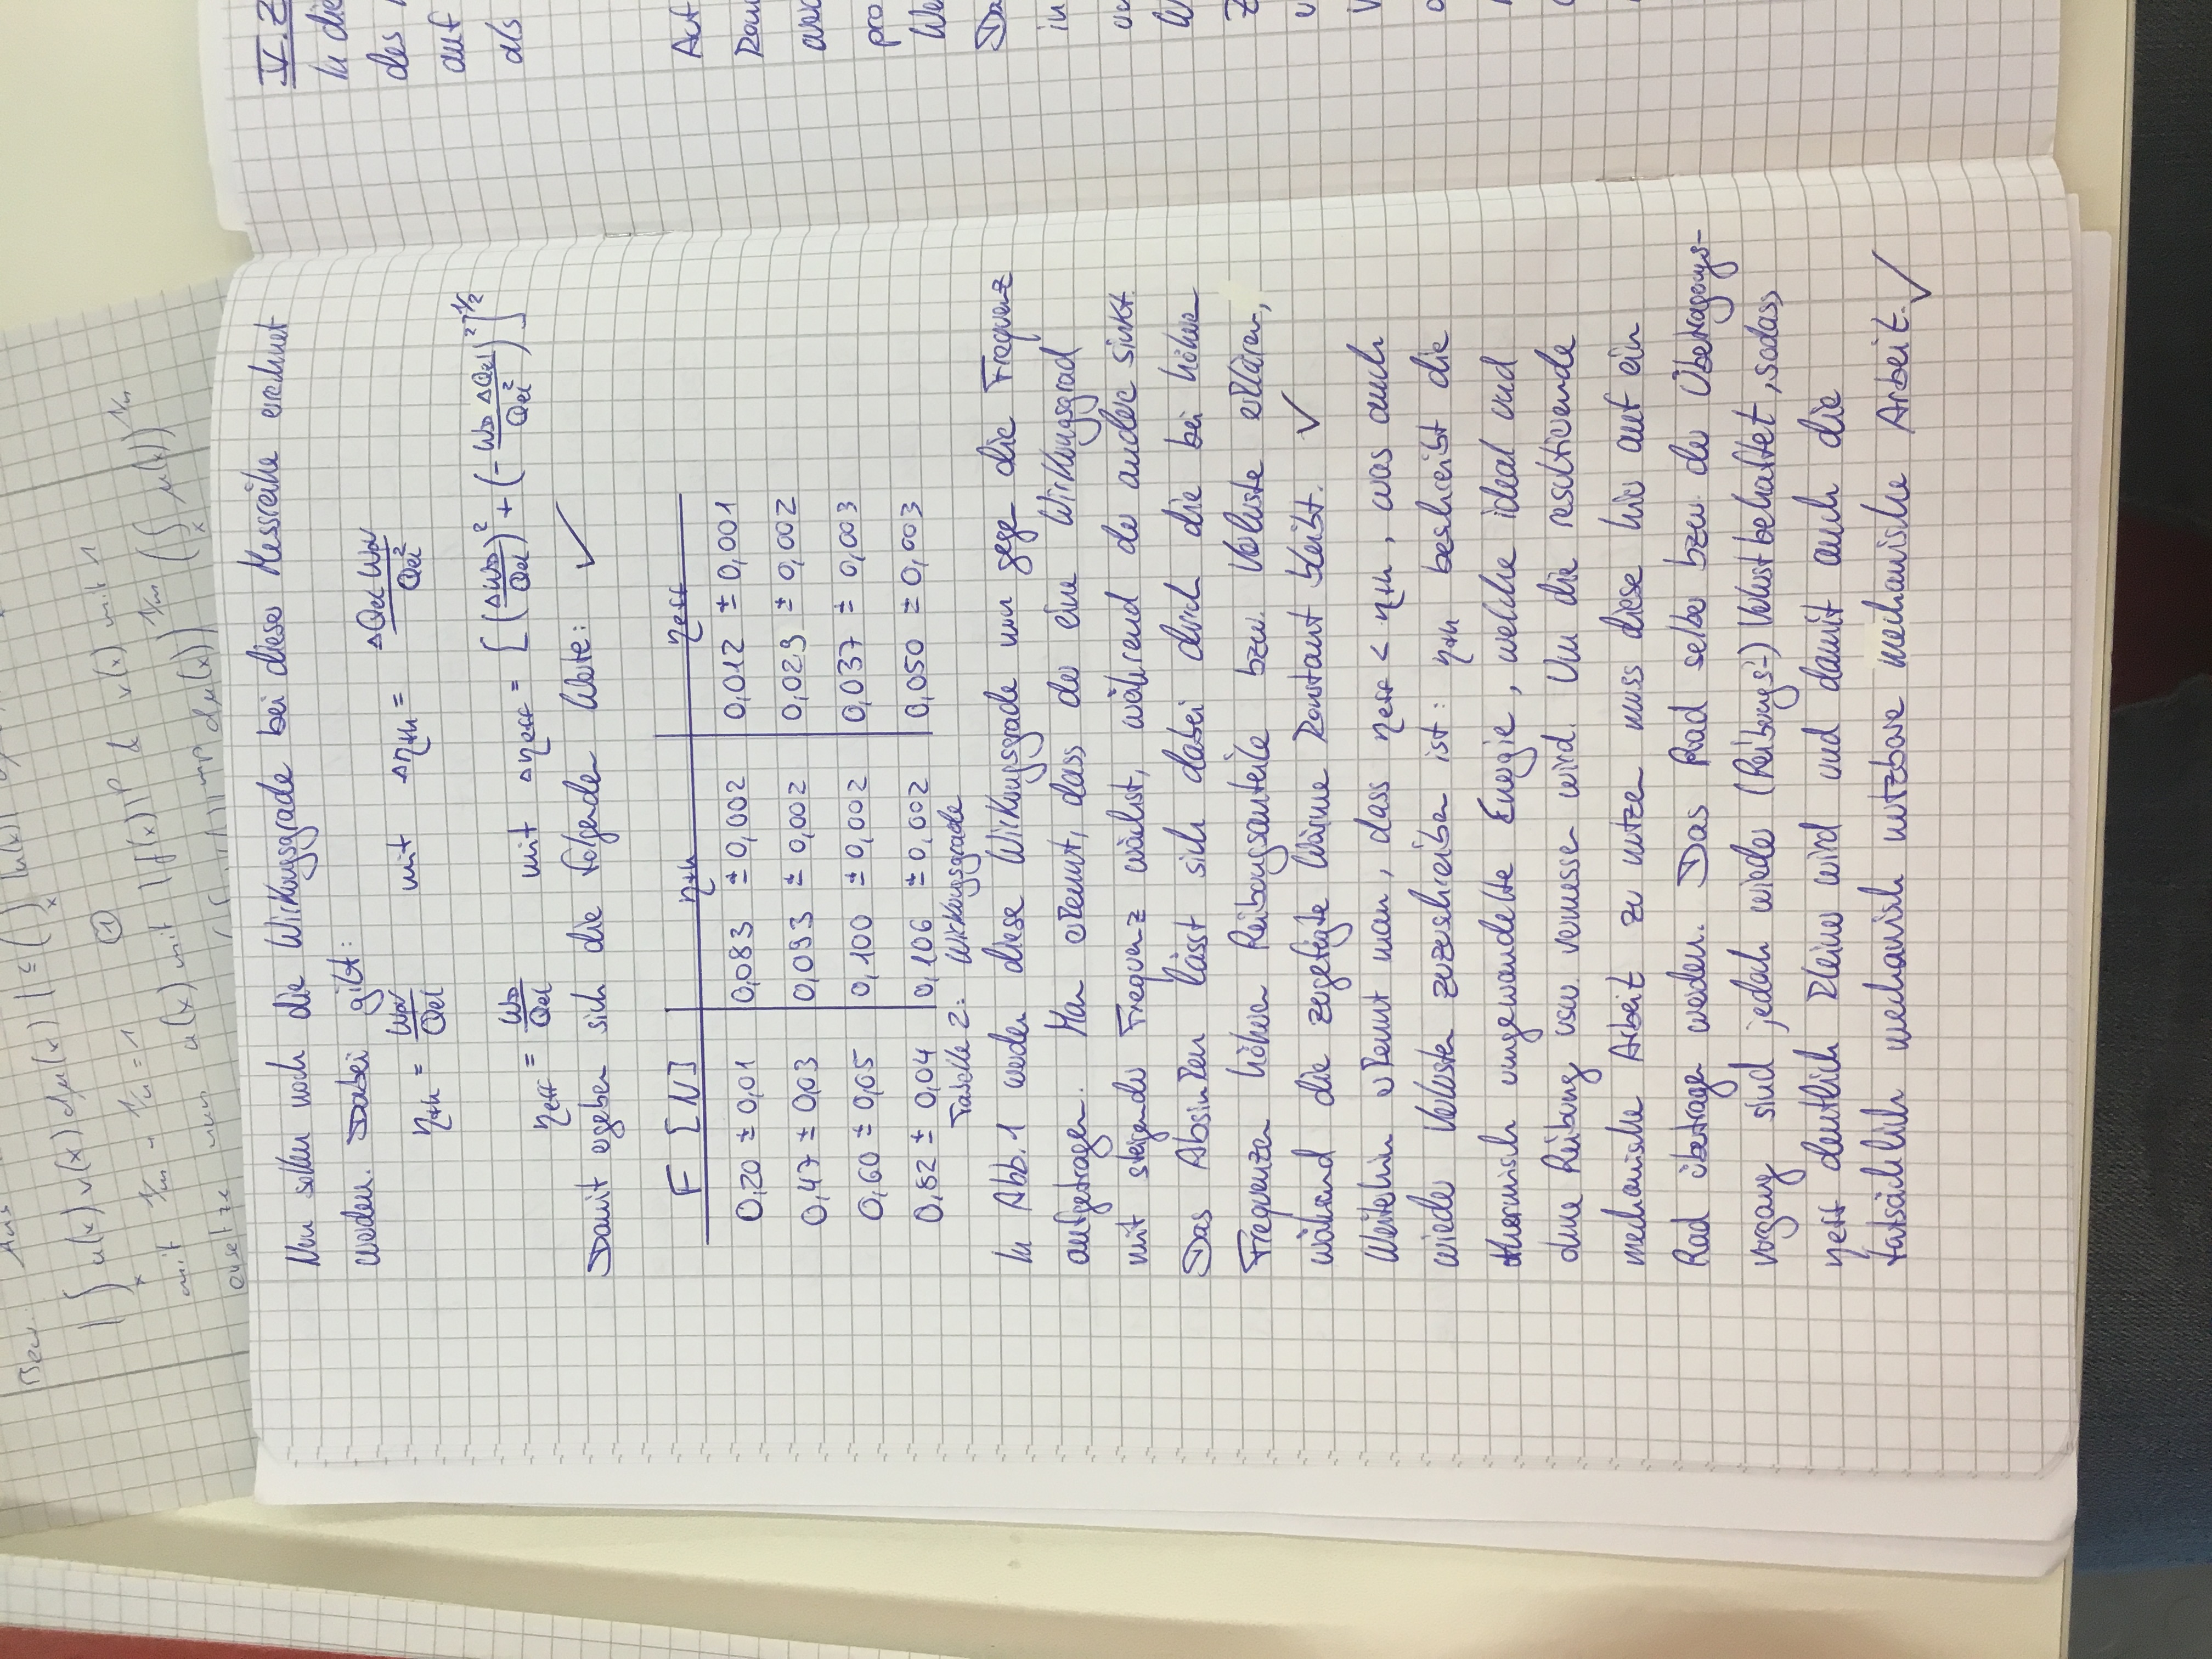 Bew. Aus
|∫ u(x) v(x) dμ(x)| ≤ (∫ |u(x)|
x x
mit 1/m + 1/n = 1 ①
ersetze nun u(x) mit |f(x)|^p & v(x) mit 1
dμ(x))^1/m (∫ μ(x))^1/n
x
Nun sollen noch die Wirkungsgrade bei dieser Messreihe errechnet
werden. Dabei gilt:
η_th = W_pV / Q_el mit Δη_th = ΔQ_el W_pV / Q_el²
η_eff = W_D / Q_el mit Δη_eff = [(ΔW_D / Q_el)² + (- W_D ΔQ_el / Q_el²)²]^1/2
Damit ergeben sich die folgenden Werte: ✓
F [N] η_th η_eff
0,20 ± 0,01 0,083 ± 0,002 0,012 ± 0,001
0,47 ± 0,03 0,093 ± 0,002 0,029 ± 0,002
0,60 ± 0,05 0,100 ± 0,002 0,037 ± 0,003
0,82 ± 0,04 0,106 ± 0,002 0,050 ± 0,003
Tabelle 2: Wirkungsgrade
In Abb. 1 werden diese Wirkungsgrade nun gegen die Frequenz
aufgetragen. Man erkennt, dass der eine Wirkungsgrad
mit steigender Frequenz wächst, während der andere sinkt.
Das Absinken lässt sich dabei durch die bei höheren
Frequenzen höheren Reibungsanteile bzw. Verluste erklären,
während die zugefügte Wärme konstant bleibt. ✓
Weiterhin erkennt man, dass η_eff < η_th, was auch
wieder Verlusten zuzuschreiben ist: η_th beschreibt die
thermisch umgewandelte Energie, welche ideal und
ohne Reibung usw. vermessen wird. Um die resultierende
mechanische Arbeit zu nutzen muss diese hier auf ein
Rad übertragen werden. Das Rad selber bzw. der Übertragungs-
vorgang sind jedoch wieder (Reibungs-) Verlustbehaftet, sodass
η_eff deutlich kleiner wird und damit auch die
tatsächlich mechanisch nutzbare mechanische Arbeit. ✓
V. Z
In die
des
auf
als
Auf
pro
We
Da
in
W
Z